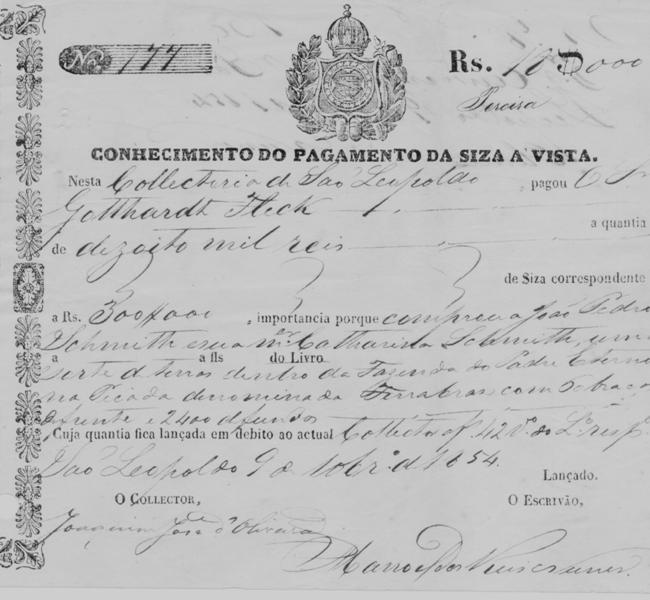 Nº 177
Rs. 18$000
Pereira
CONHECIMENTO DO PAGAMENTO DA SIZA A' VISTA.
Nesta Collectoria de São Leopoldo, pagou O Sr
Gotthardt Fleck
a quantia
de dezoito mil reis
de Siza correspondente
a Rs. 300$000, importancia porque comprou a João Pedro
Schmith e sua mer Catharina Schmith, uma
a a fls do Livro
sorte de terras dentro da Fazenda do Padre Eterno
na Picada denominada Ferrabras com
frente e 2400 de fundos
Cuja quantia fica lançada em debito ao actual Collector af. 42 vº do Lº resp.
São Leopoldo 9 de 10brº de 1854.
Lançado.
O COLLECTOR,
O ESCRIVÃO,
Joaquim José d'Oliveira
Manoel dos